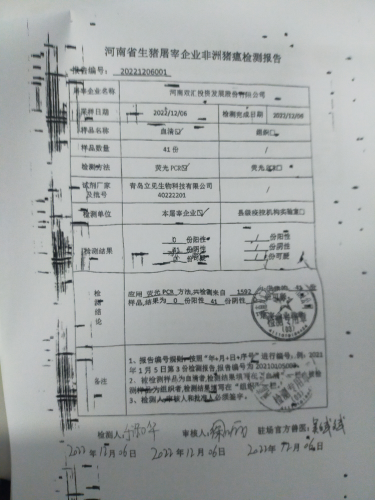 河南省生猪屠宰企业非洲猪瘟检测报告
报告编号：20221206001
屠宰企业名称 河南双汇投资发展股份有限公司
采样日期 2022/12/06 检测完成日期 2022/12/06
样品名称 血清☑ 组织□
样品数量 41份 /
检测方法 荧光PCR☑ 荧光PCR□
试剂厂家及批号 青岛立见生物科技有限公司 40222201 /
检测单位 本屠宰企业☑ 县级疫控机构实验室□
检测结果 0 份阳性 / 份阳性
41 份阴性 / 份阴性
0 份可疑 / 份可疑
检测结论 应用 荧光PCR 方法,共检测来自 1592
样品,结果为 0 份阳性 41 份阴性
备注 1、报告编号规则：按照"年+月+日+序号"进行编号，例：2021
年1月5日第3份检测报告,报告编号为20210105003
2、被检测样品为血清者,检测结果填写在"血清"
样品为组织者,检测结果填写在"组织"
3、检测人、审核人和批准人必须签字。
检测人： 审核人： 驻场官方兽医：
2022年12月06日 2022年12月06日 2022年12月06日